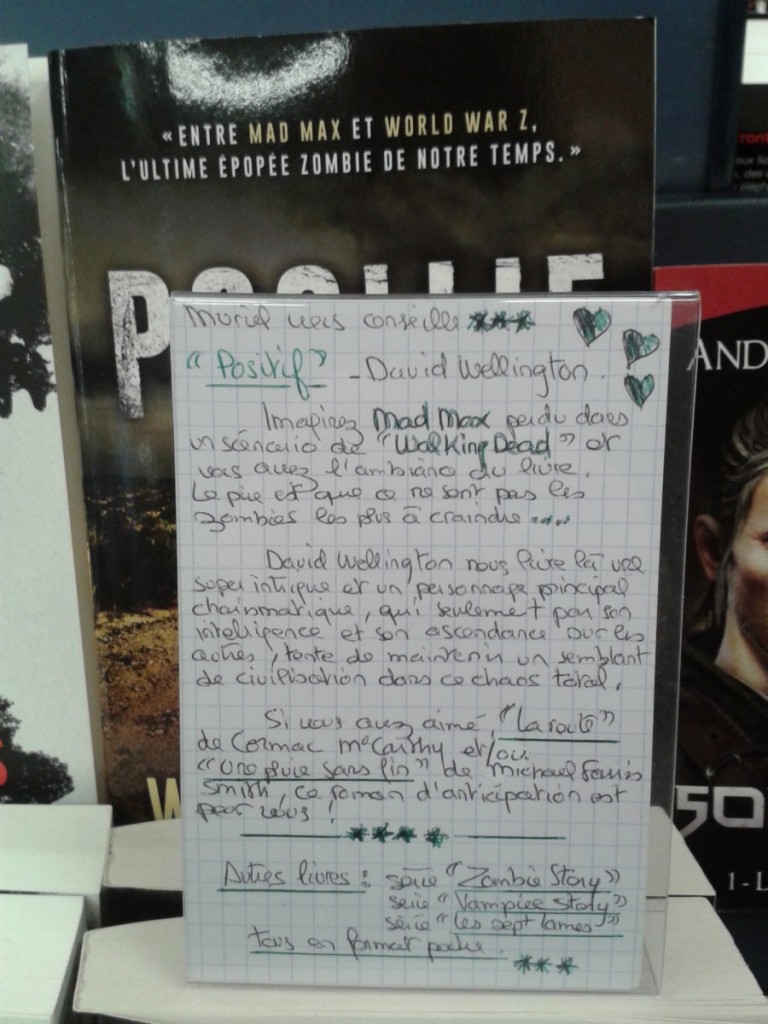 « ENTRE MAD MAX ET WORLD WAR Z,
L'ULTIME ÉPOPÉE ZOMBIE DE NOTRE TEMPS. »
Muriel vous conseille ***
"Positif" - David Wellington.
Imaginez Mad Max perdu dans
un scénario de "Walking Dead" et
vous avez l'ambiance du livre.
Le pire est que ce ne sont pas les
zombies les plus à craindre ....
David Wellington nous livre là une
super intrigue et un personnage principal
charismatique, qui seulement par son
intelligence et son ascendance sur les
autres, tente de maintenir un semblant
de civilisation dans ce chaos total.
Si vous avez aimé "La route"
de Cormac McCarthy et/ou
"Une pluie sans fin" de Michael Farris
Smith, ce roman d'anticipation est
pour vous !
****
Autres livres : série "Zombie Story"
série "Vampire Story"
série "Les sept lames"
tous en format poche.
***
AND
50
1 - L